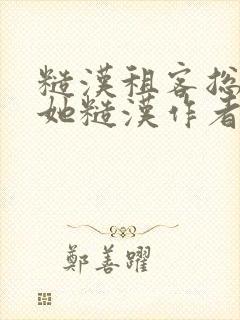 糙漢租客總
她糙漢作者
鄭善躍